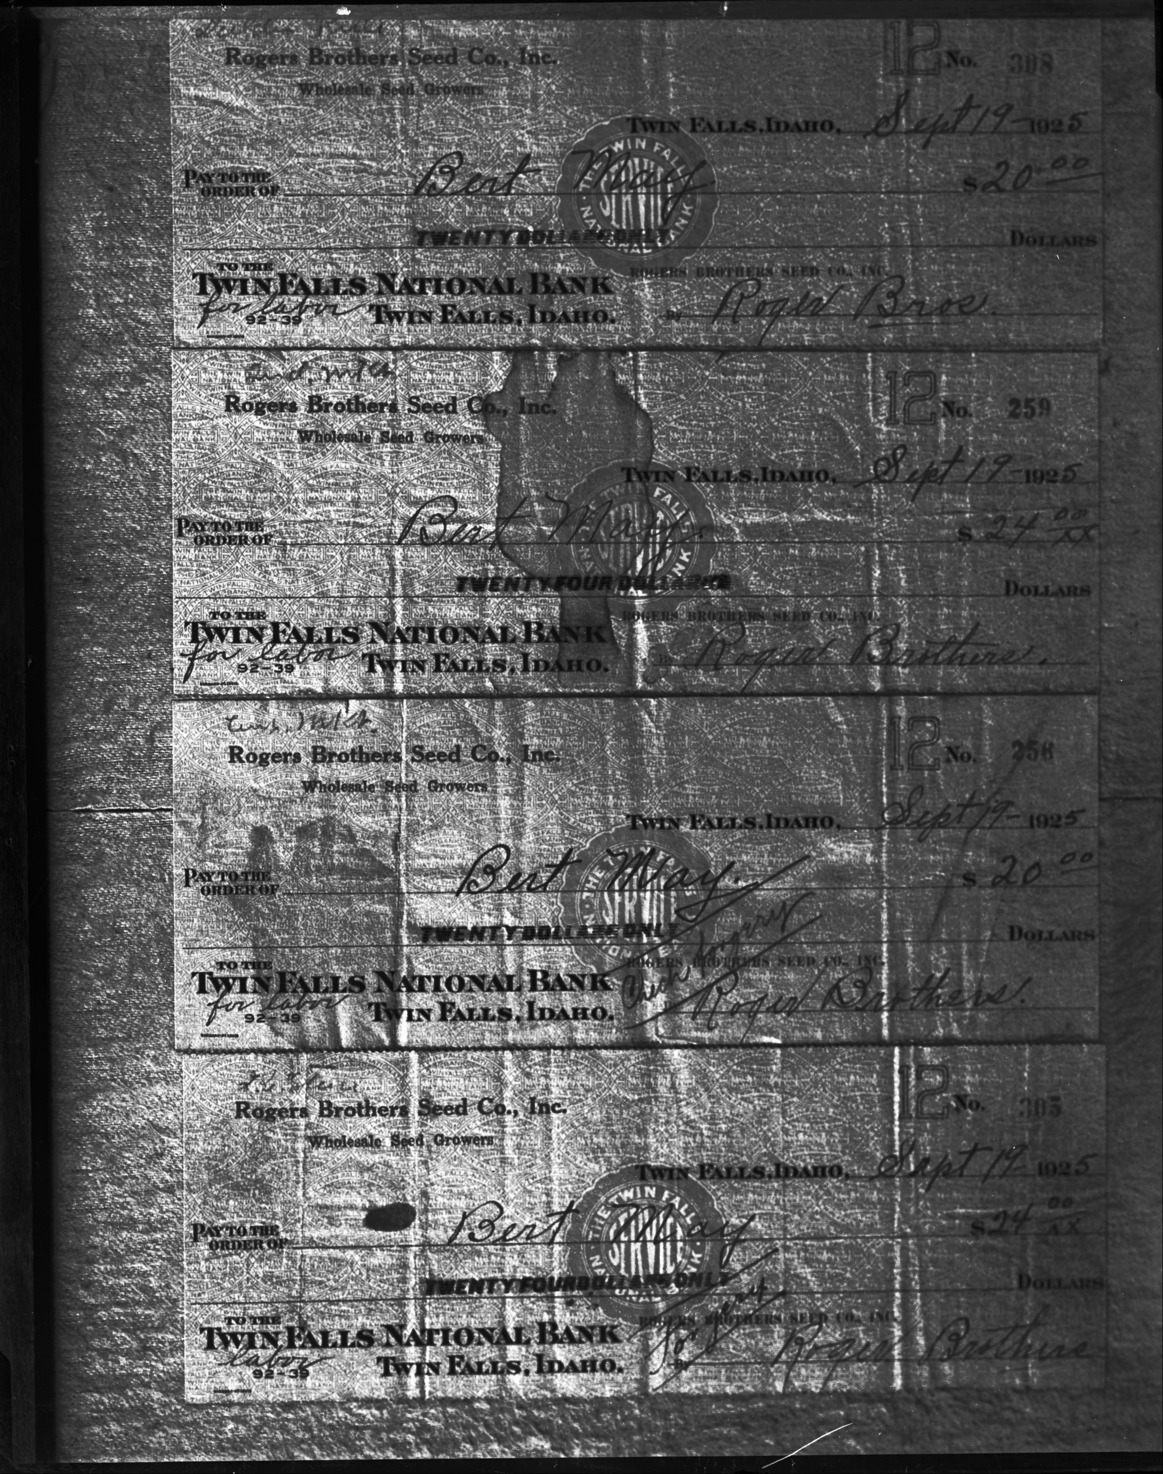 Rogers Brothers Seed Co., Inc.
12 No. 308
Wholesale Seed Growers
TWIN FALLS, IDAHO, Sept 19- 1925
PAY TO THE ORDER OF Bert May $20.00
THE TWIN FALLS NATIONAL BANK SERVICE
TWENTY DOLLARS ONLY DOLLARS
TO THE
TWIN FALLS NATIONAL BANK
ROGERS BROTHERS SEED CO., INC.
for labor
92-39 TWIN FALLS, IDAHO.
BY Roger Bros.
Rogers Brothers Seed Co., Inc.
12 No. 259
Wholesale Seed Growers
TWIN FALLS, IDAHO, Sept 19- 1925
PAY TO THE ORDER OF Bert May. $24 00/XX
FALLS
BANK
TWENTY FOUR DOLLARS DOLLARS
TO THE
TWIN FALLS NATIONAL BANK
ROGERS BROTHERS SEED CO., INC.
for labor
92-39 TWIN FALLS, IDAHO.
BY Roger Brothers.
Rogers Brothers Seed Co., Inc.
12 No. 256
Wholesale Seed Growers
TWIN FALLS, IDAHO, Sept 19- 1925
PAY TO THE ORDER OF Bert May. $20 00
THE
SERVICE
TWENTY DOLLARS ONLY DOLLARS
TO THE
TWIN FALLS NATIONAL BANK
ROGERS BROTHERS SEED CO., INC.
for labor
92-39 TWIN FALLS, IDAHO.
Roger Brothers.
Rogers Brothers Seed Co., Inc.
12 No. 305
Wholesale Seed Growers
TWIN FALLS, IDAHO, Sept 19 1925
PAY TO THE ORDER OF Bert May $24 00/XX
THE TWIN FALLS NATIONAL BANK SERVICE
TWENTY FOUR DOLLARS ONLY DOLLARS
forgery
TO THE
TWIN FALLS NATIONAL BANK
ROGERS BROTHERS SEED CO., INC.
labor
92-39 TWIN FALLS, IDAHO.
BY Roger Brothers